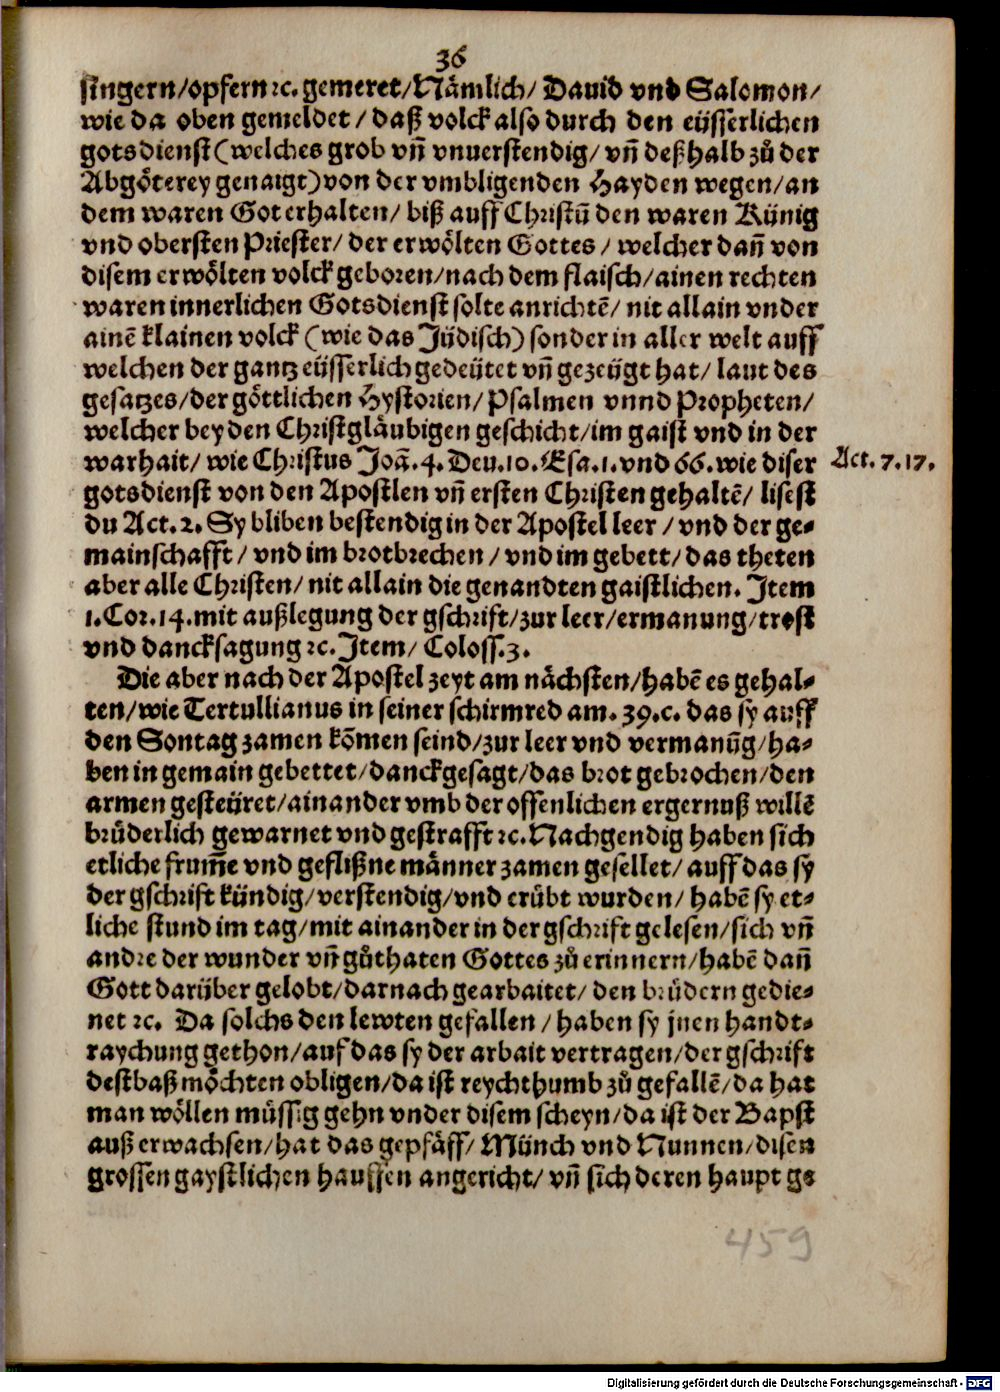 36
singern/opfern ꝛc. gemeret/Nämlich/ Dauid vnd Salomon/
wie da oben gemeldet/ daß volck also durch den eüsserlichen
gotsdienst (welches grob vñ vnuerstendig/ vñ deßhalb zů der
Abgöterey genaigt) von der vmbligenden Hayden wegen/ an
dem waren Got erhalten/ biß auff Christū den waren Künig
vnd obersten Priester/ der erwölten Gottes/ welcher dañ von
disem erwölten volck geboren/nach dem flaisch/ainen rechten
waren innerlichen Gotsdienst solte anrichtē/ nit allain vnder
ainē klainen volck (wie das Jüdisch) sonder in aller welt auff
welchen der gantz eüsserlich gedeütet vñ gezeügt hat/ laut des
gesatzes/der göttlichen Hystorien/Psalmen vnnd Propheten/
welcher bey den Christgläubigen geschicht/im gaist vnd in der
warhait/ wie Christus Joā.4. Deu.10. Esa.1. vnd 66. wie diser
Act. 7.17.
gotsdienst von den Apostlen vñ ersten Christen gehaltē/ lisest
du Act.2. Sy bliben bestendig in der Apostel leer/ vnd der ge⸗
mainschafft/ vnd im brotbrechen/ vnd im gebett/ das theten
aber alle Christen/ nit allain die genandten gaistlichen. Item
1.Cor.14.mit außlegung der gschrift/zur leer/ermanung/trost
vnd dancksagung ꝛc. Item/ Coloss.3.
Die aber nach der Apostel zeyt am nächsten/habē es gehal⸗
ten/wie Tertullianus in seiner schirmred am. 39.c. das sy auff
den Sontag zamen kōmen seind/zur leer vnd vermanūg/ha⸗
ben in gemain gebettet/danckgesagt/das brot gebrochen/den
armen gesteüret/ainander vmb der offenlichen ergernuß willē
brüderlich gewarnet vnd gestrafft ꝛc. Nachgendig haben sich
etliche frum̄e vnd geflißne männer zamen gesellet/ auff das sy
der gschrift kündig/verstendig/vnd erübt wurden/ habē sy et⸗
liche stund im tag/mit ainander in der gschrift gelesen/sich vñ
andre der wunder vñ gůthaten Gottes zů erinnern/habē dañ
Gott darüber gelobt/darnach gearbaitet/ den brüdern gedie⸗
net ꝛc. Da solchs den lewten gefallen/ haben sy jnen handt⸗
raychung gethon/auf das sy der arbait vertragen/der gschrift
destbaß möchten obligen/da ist reychthumb zů gefallē/da hat
man wöllen müssig gehn vnder disem scheyn/da ist der Bapst
auß erwachsen/hat das gepfäff/ Münch vnd Nunnen/disen
grossen gaystlichen hauffen angericht/ vñ sich deren haupt ge
459
Digitalisierung gefördert durch die Deutsche Forschungsgemeinschaft - DFG